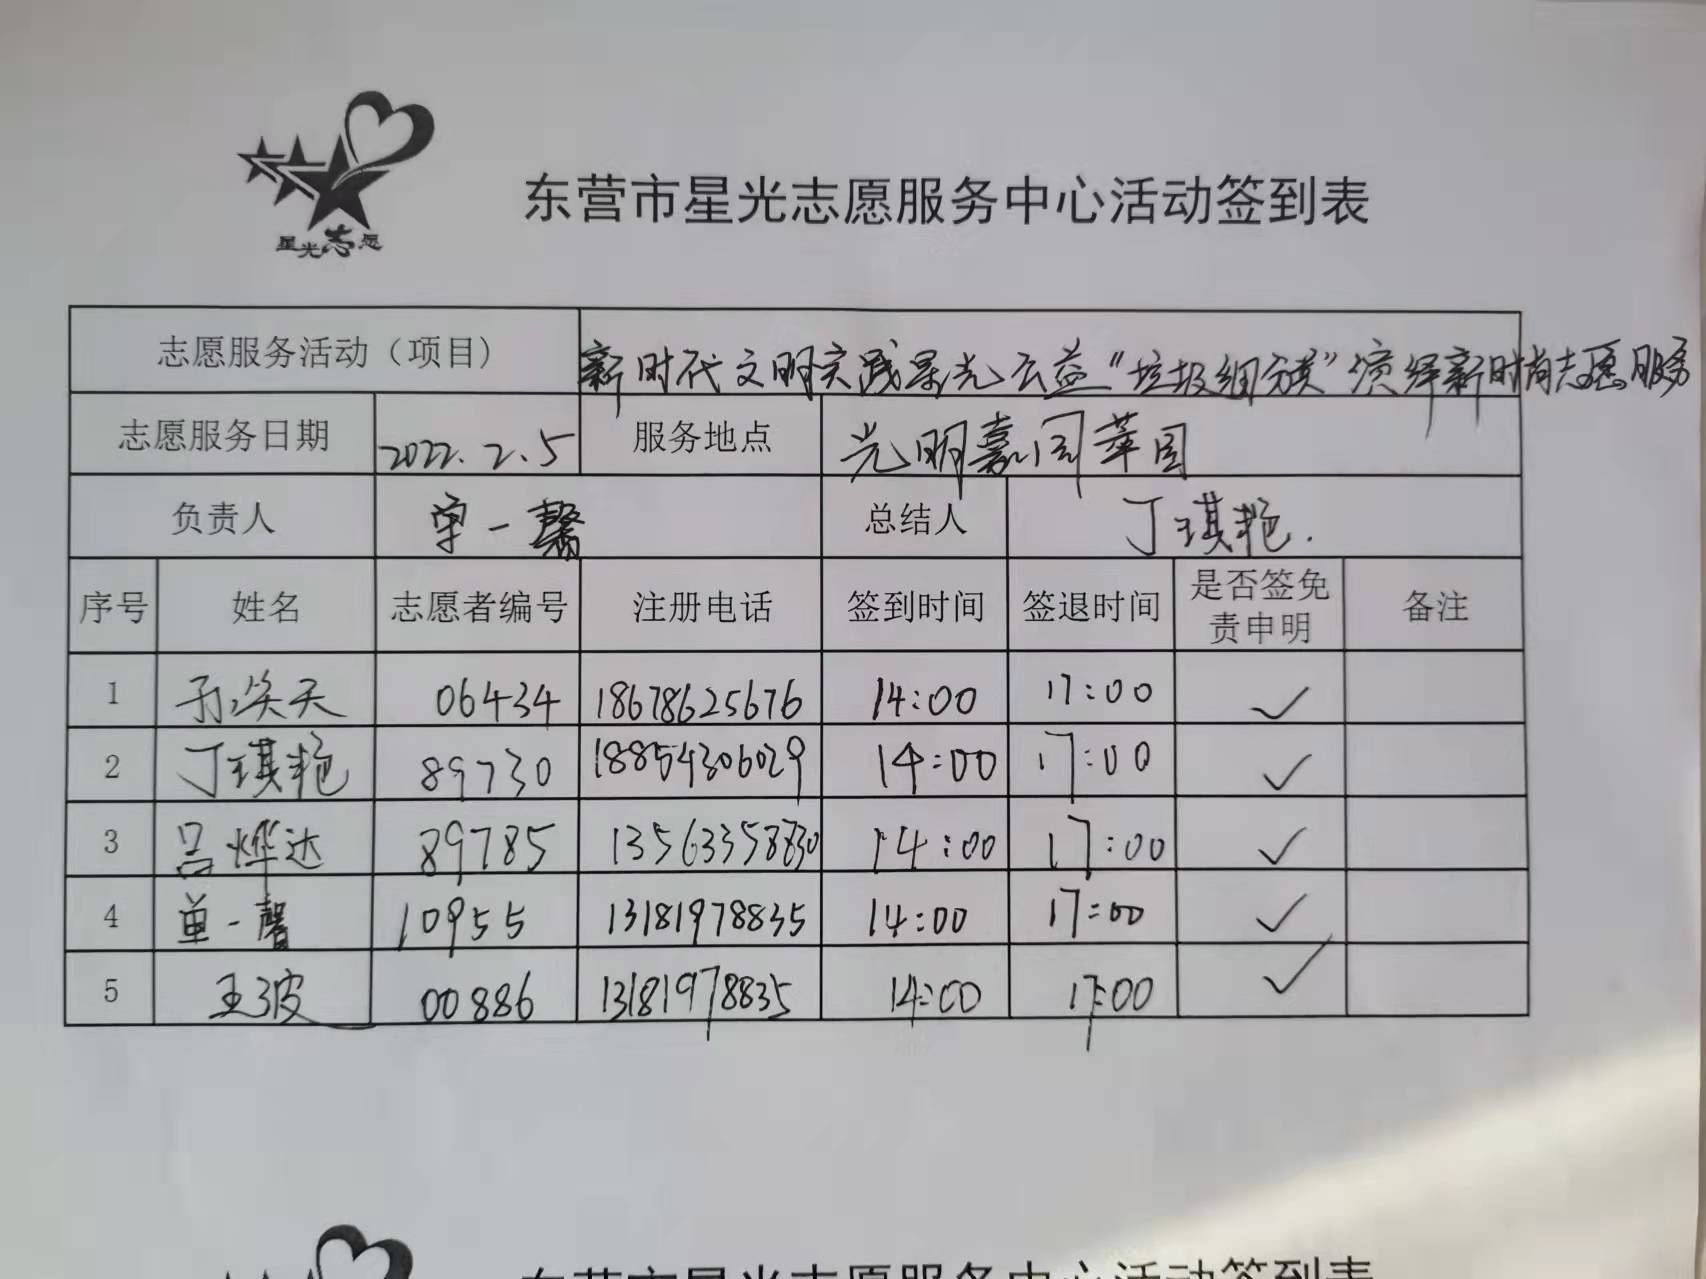 星光志愿
东营市星光志愿服务中心活动签到表
志愿服务活动（项目） 新时代文明实践星光公益“垃圾细分类”演绎新时尚志愿服务
志愿服务日期 2022.2.5 服务地点 光明嘉园苹园
负责人 单一馨 总结人 丁琪艳.
序号 姓名 志愿者编号 注册电话 签到时间 签退时间 是否签免责申明 备注
1 孙涣天 06434 18678625676 14:00 17:00 ✓
2 丁琪艳 89730 18854306029 14:00 17:00 ✓
3 吕烨达 89785 13563358830 14:00 17:00 ✓
4 单一馨 10955 13181978835 14:00 17:00 ✓
5 王波 00886 13181978835 14:00 17:00 ✓
东营市星光志愿服务中心活动签到表